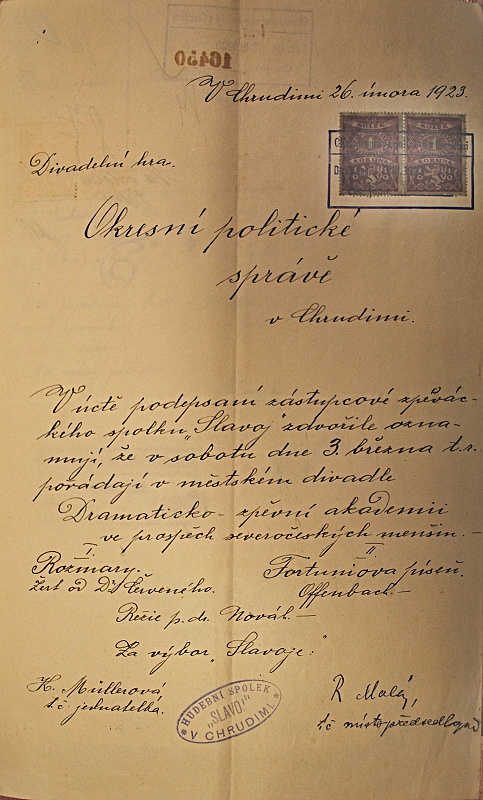 16450
V Chrudimi 26. února 1923.
KOLEK KOLEK
1 1
KORUNA KORUNA
Divadelní hra.
Okresní politické
správě
v Chrudimi.
V úctě podepsaní zástupcové zpěvác-
kého spolku „Slavoj" zdvořile ozna-
mují, že v sobotu dne 3. března t.r.
pořádají v městském divadle
Dramaticko-zpěvní akademii
ve prospěch severočeských menšin.—
I. II.
Rozmary. Fortuniova píseň.
Žert od Dr. Červeného. Offenbach.—
Režie p. dr. Novák.—
Za výbor „Slavoje:"
K. Müllerová
t.č. jednatelka.
HUDEBNÍ SPOLEK
„SLAVOJ"
V CHRUDIMI.
R Malý,
t.č. místopředseda